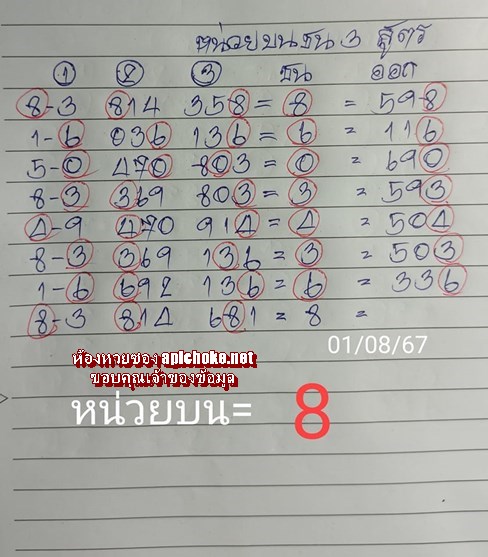 หน่วยบนชน 3 สูตร
① ② ③ ชน ออก
8-3 814 358 = 8 = 598
1-6 036 136 = 6 = 116
5-0 470 803 = 0 = 690
8-3 369 803 = 3 = 593
4-9 470 914 = 4 = 504
8-3 369 136 = 3 = 503
1-6 692 136 = 6 = 336
8-3 814 681 = 8 =
01/08/67
ห้องหวยซอง apichoke.net
ขอบคุณเจ้าของข้อมูล
หน่วยบน= 8